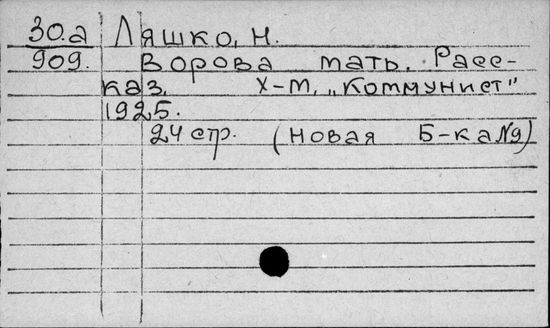 30.а Ляшко, Н.
909. Ворова мать. Расс-
каз. Х-м, „Коммунист"
1925.
24 стр. (Новая Б-ка №9)